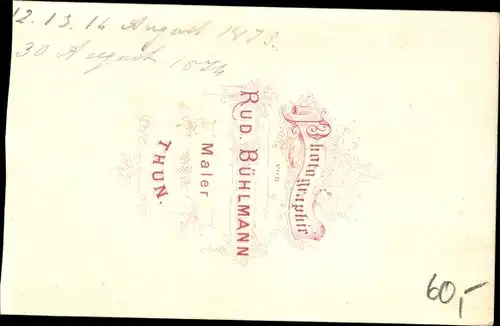 12. 13. 16 August 1873.
30 August 1874
Photographie
von
RUD. BÜHLMANN
Maler
THUN.
60,-